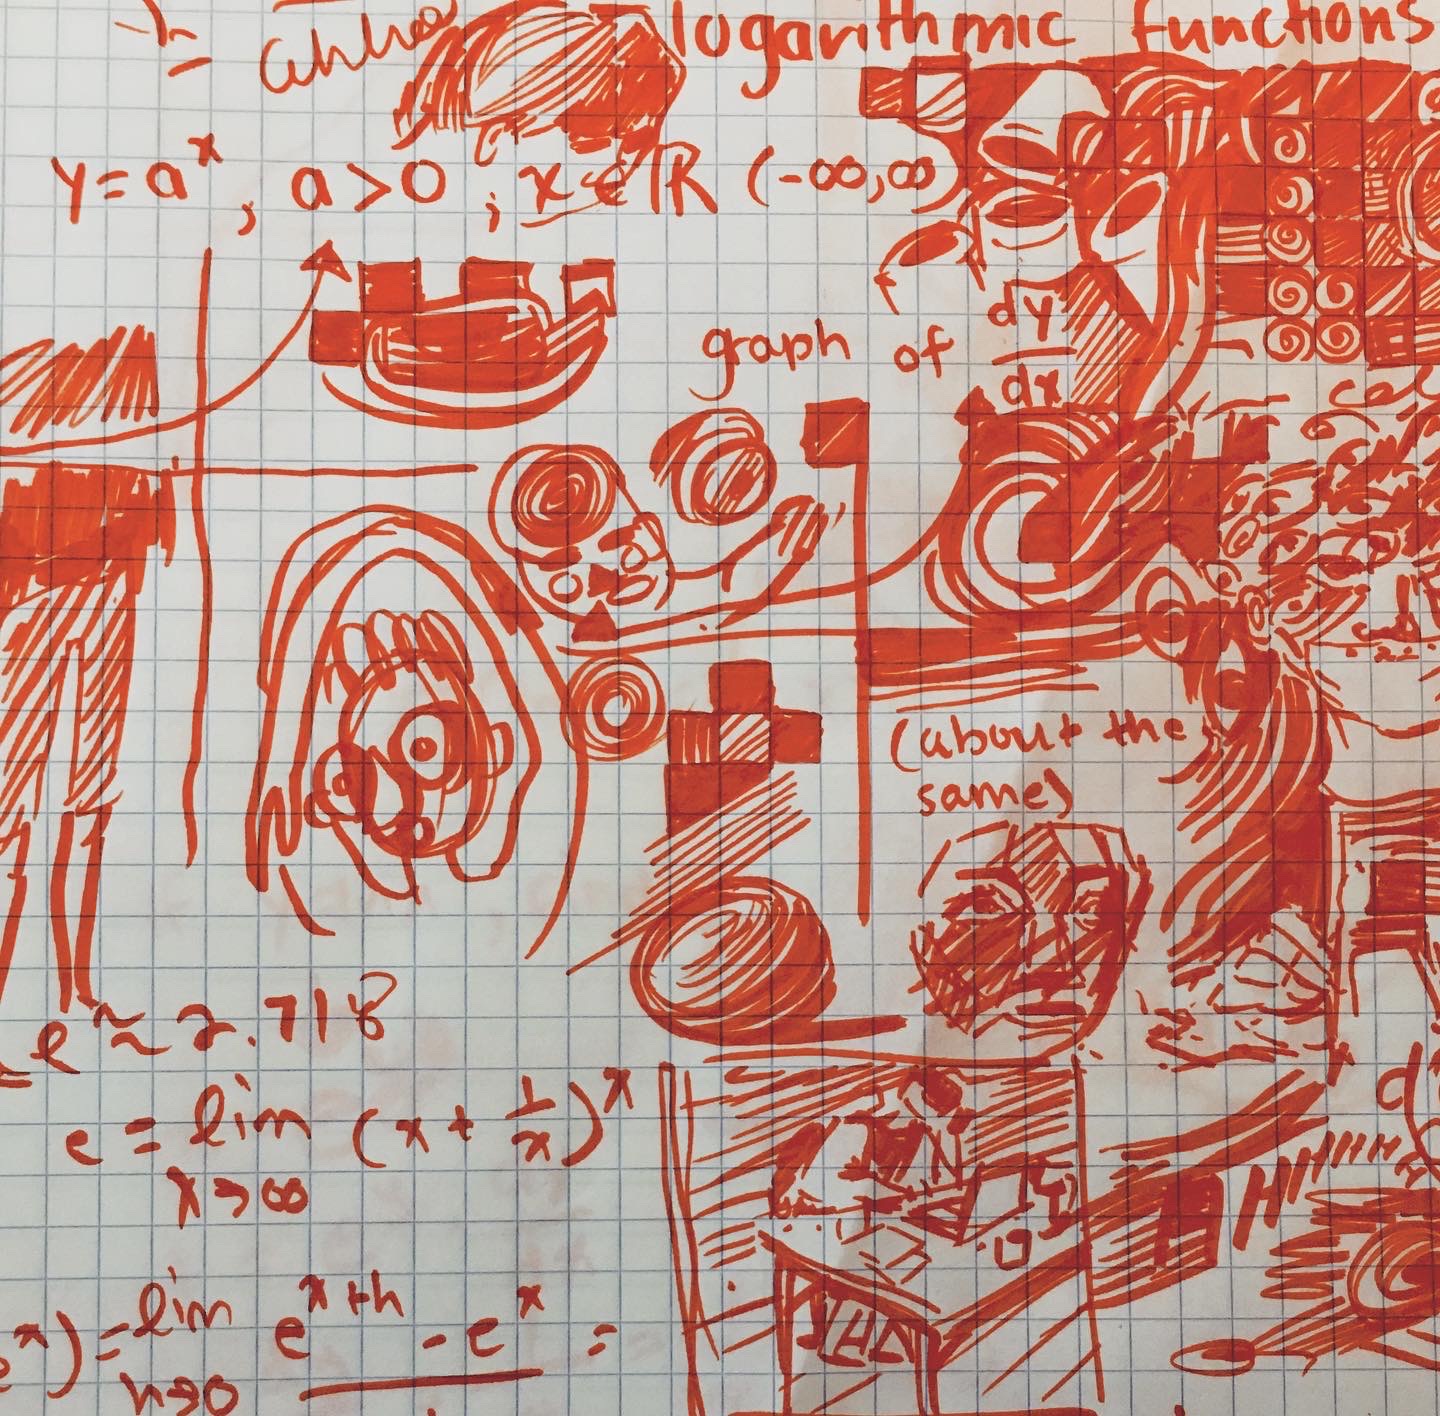 logarithmic functions
y = a^x , a > 0 ; x ∈ ℝ (-∞,∞)
graph of dy/dx
(about the
same)
e ≈ 2.718
e = lim (x + 1/x)^x
x→∞
e^x) = lim e^x+h - e^x =
h→0